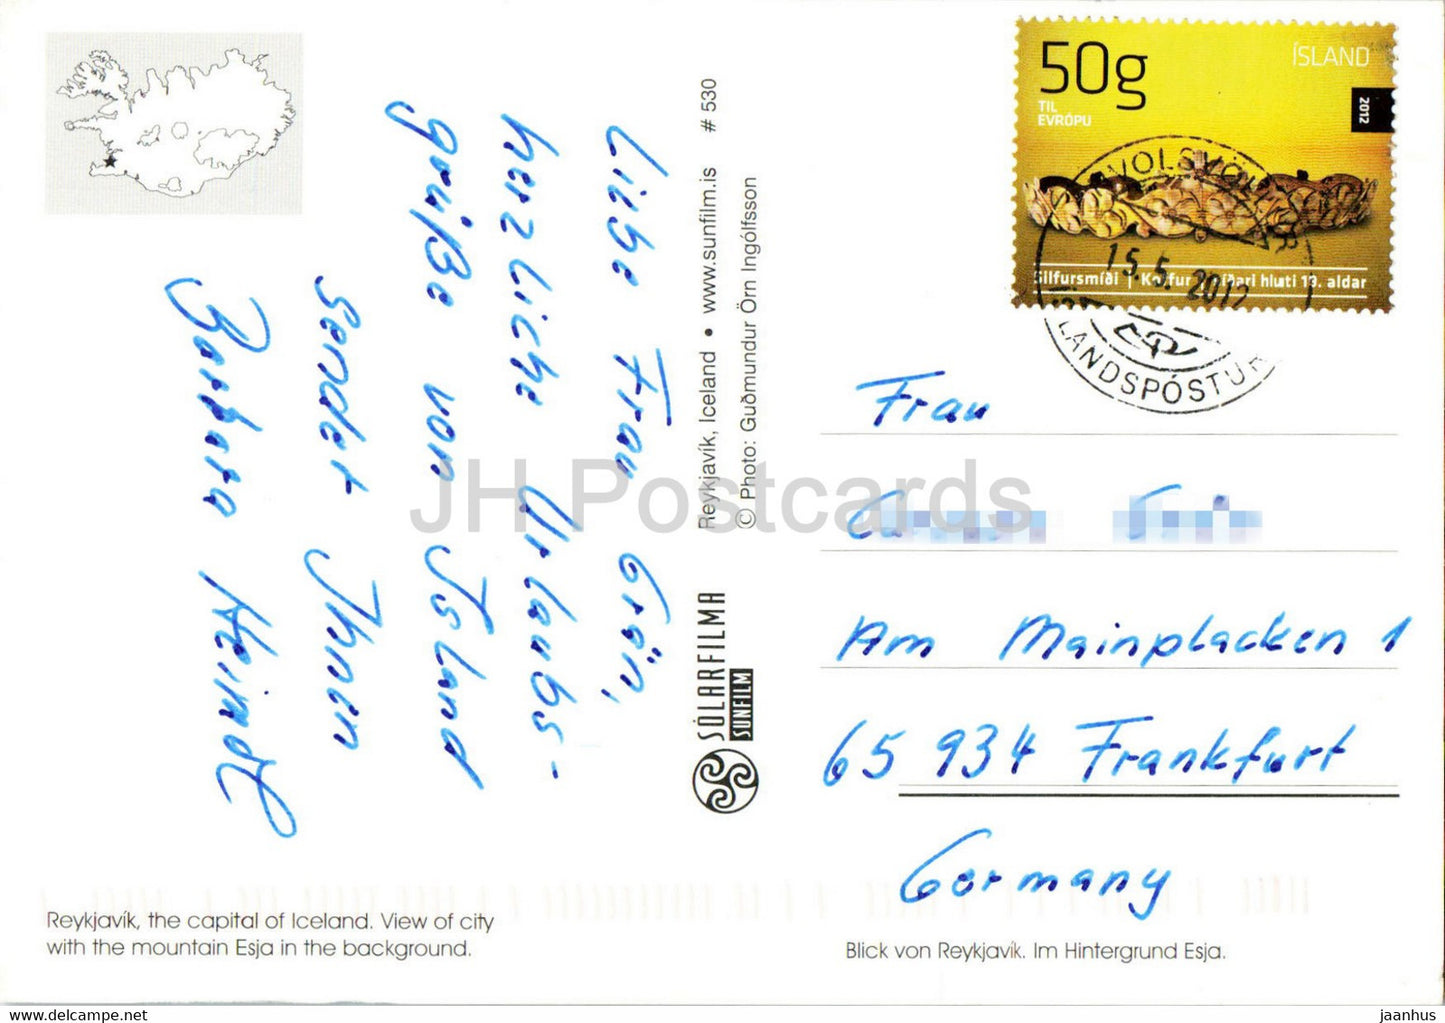 50g
ÍSLAND
TIL
EVRÓPU
2012
HVOLSVÖLLUR
15.5. 2012
Silfursmíði | Koffur síðari hluti 13. aldar
ÍSLANDSPÓSTUR
Liebe Frau Grän,
herzliche Urlaubs-
grüße von Island
sendet Ihnen
Barbara Heindl
Reykjavík, Iceland • www.sunfilm.is # 530
© Photo: Guðmundur Örn Ingólfsson
SÓLARFILMA
SUNFILM
JH Postcards
Frau
Am Mainplacken 1
65 934 Frankfurt
Germany
Reykjavík, the capital of Iceland. View of city
with the mountain Esja in the background.
Blick von Reykjavík. Im Hintergrund Esja.
jaanhus